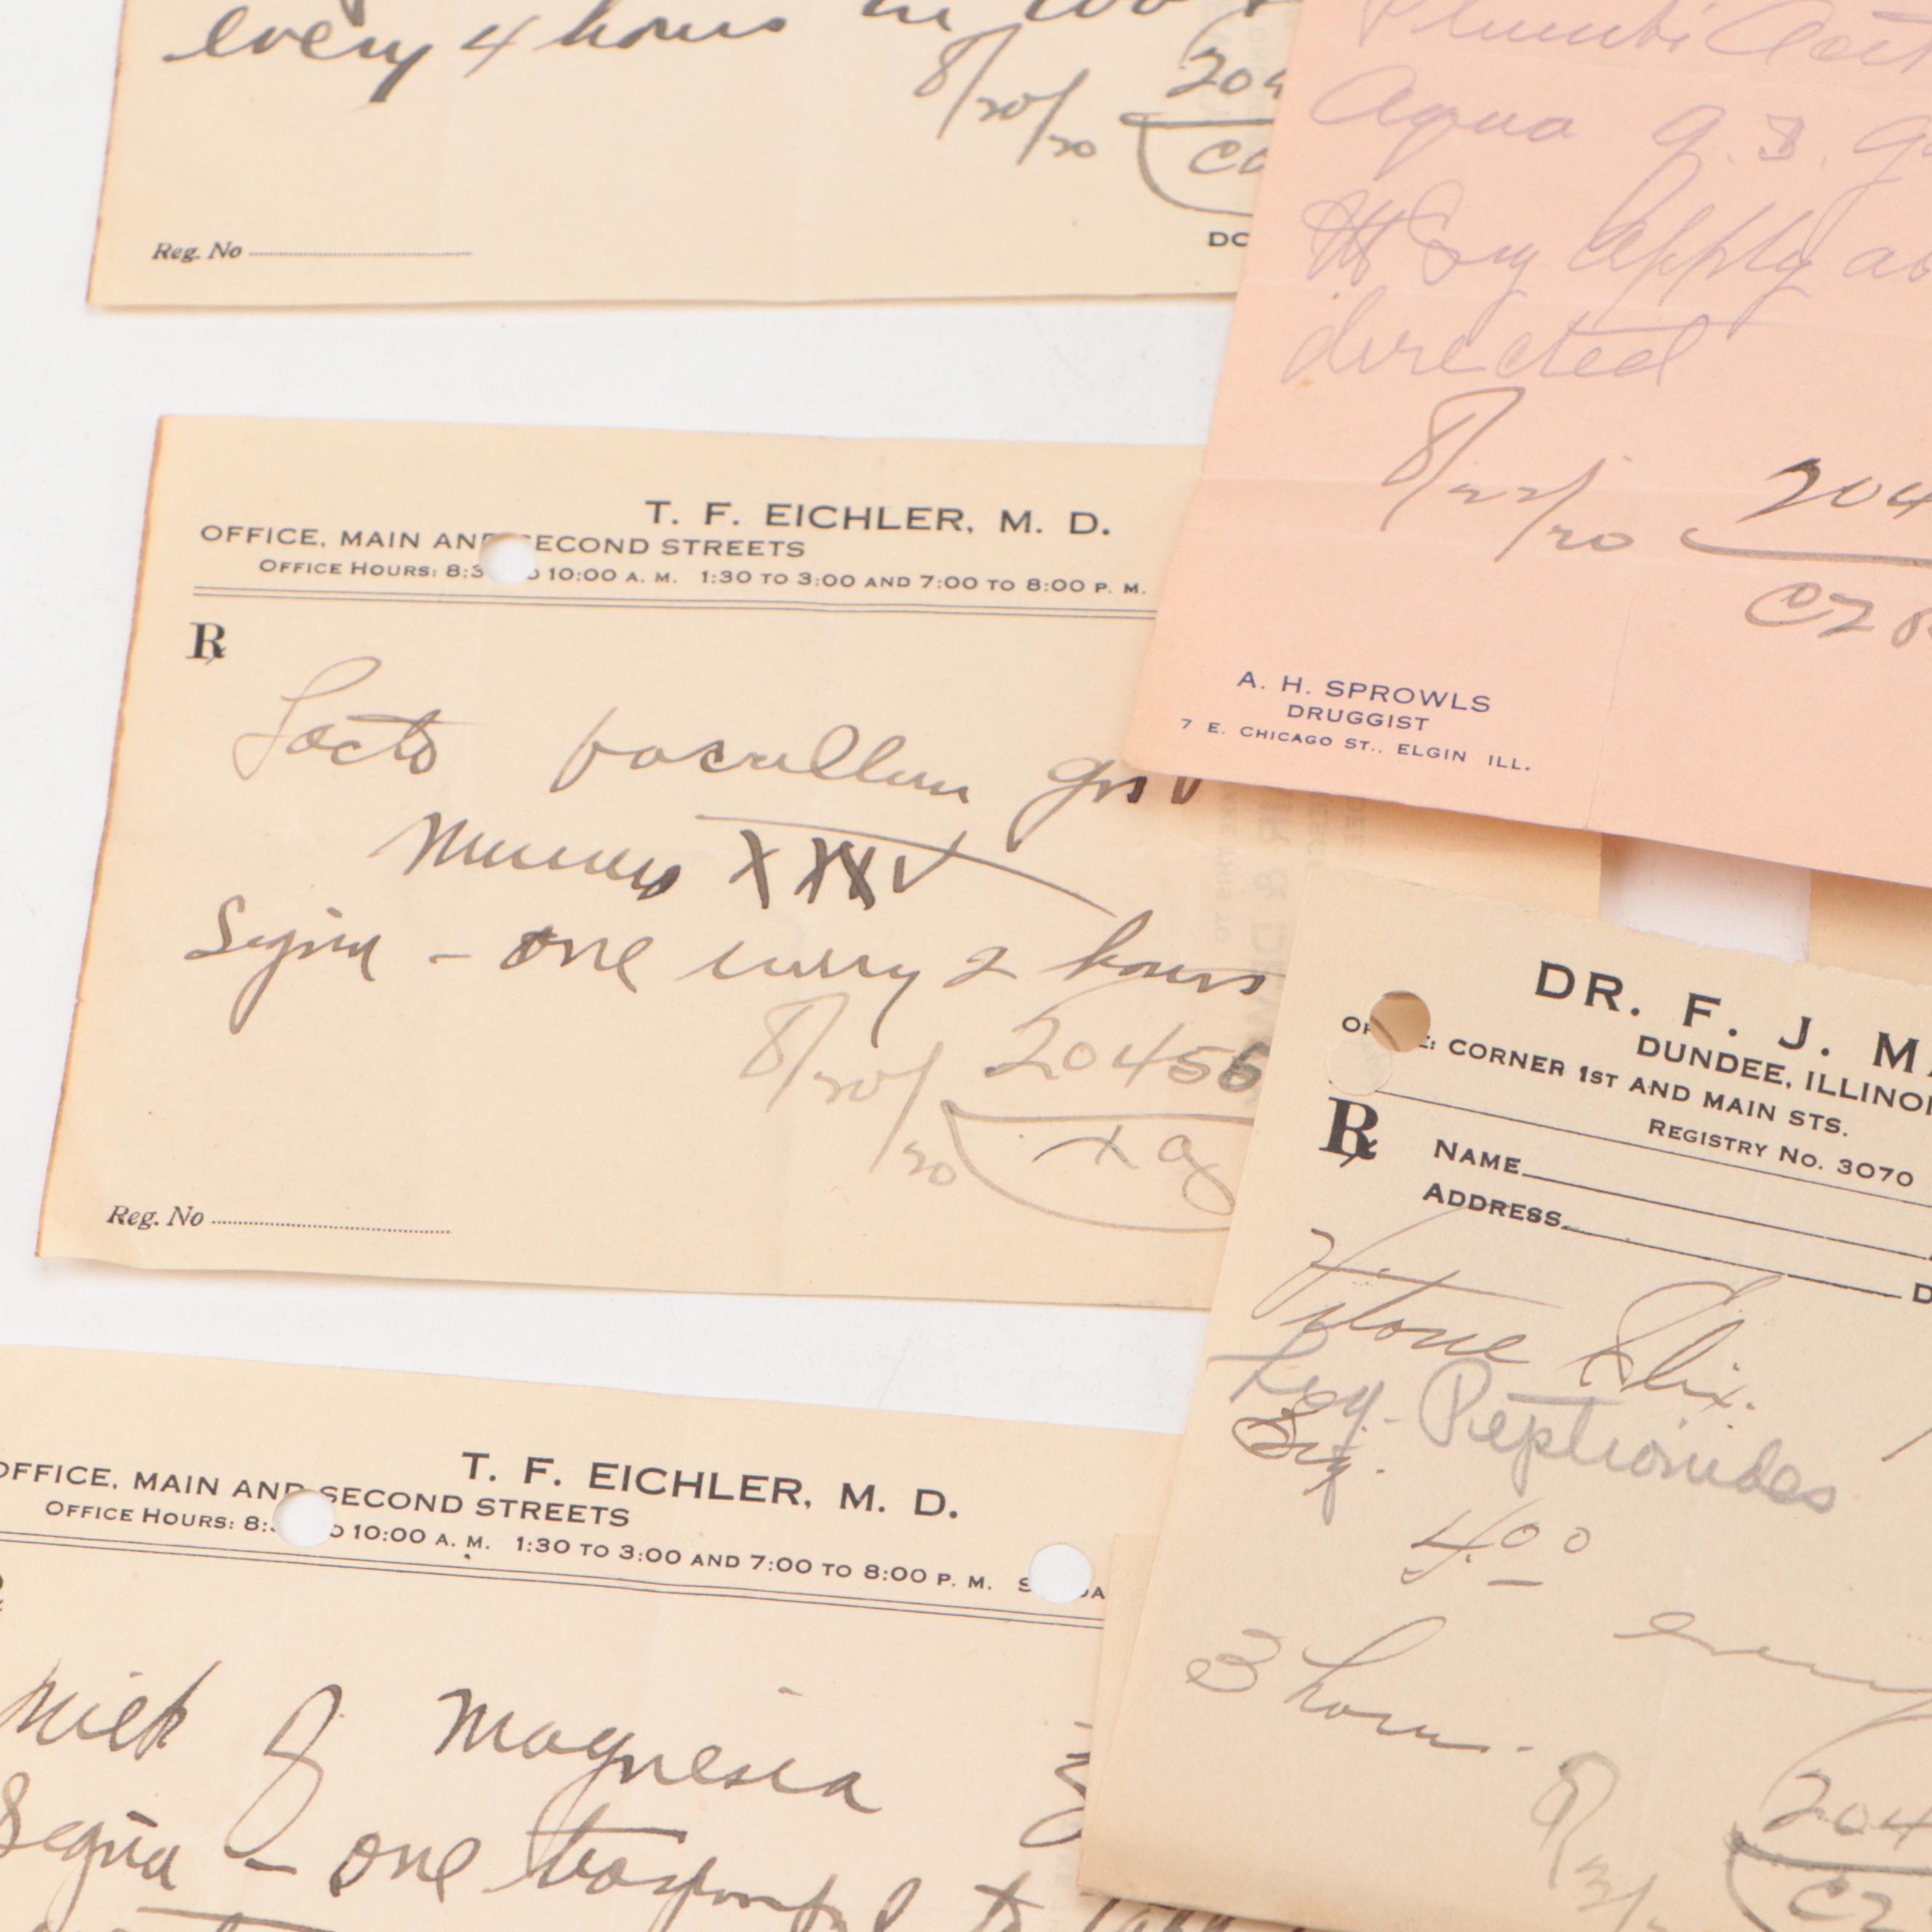 every 4 hours in
8/20/20 204
Reg. No
DO
Aqua q.s.
Sig Apply as
directed
8/22/20 204
C28
A. H. SPROWLS
DRUGGIST
7 E. CHICAGO ST., ELGIN ILL.
T. F. EICHLER, M. D.
OFFICE, MAIN AND SECOND STREETS
OFFICE HOURS: 8:3 10:00 A. M. 1:30 TO 3:00 AND 7:00 TO 8:00 P. M.
℞
Lacto bacillum grs V
Numero XXXV
Signa - one every 2 hours
8/20/20 20456
Reg. No
DR. F. J. MA
DUNDEE, ILLINOI
OF E: CORNER 1ST AND MAIN STS.
REGISTRY NO. 3070
℞ NAME
ADDRESS
D
Vitone Elix.
Liq. Peptionides
Sig.
4.00
every
3 hours.
204
C2
T. F. EICHLER, M. D.
OFFICE, MAIN AND SECOND STREETS
OFFICE HOURS: 8: O 10:00 A. M. 1:30 TO 3:00 AND 7:00 TO 8:00 P. M. S DA
Milk of Magnesia
Signa - one teaspoonful to